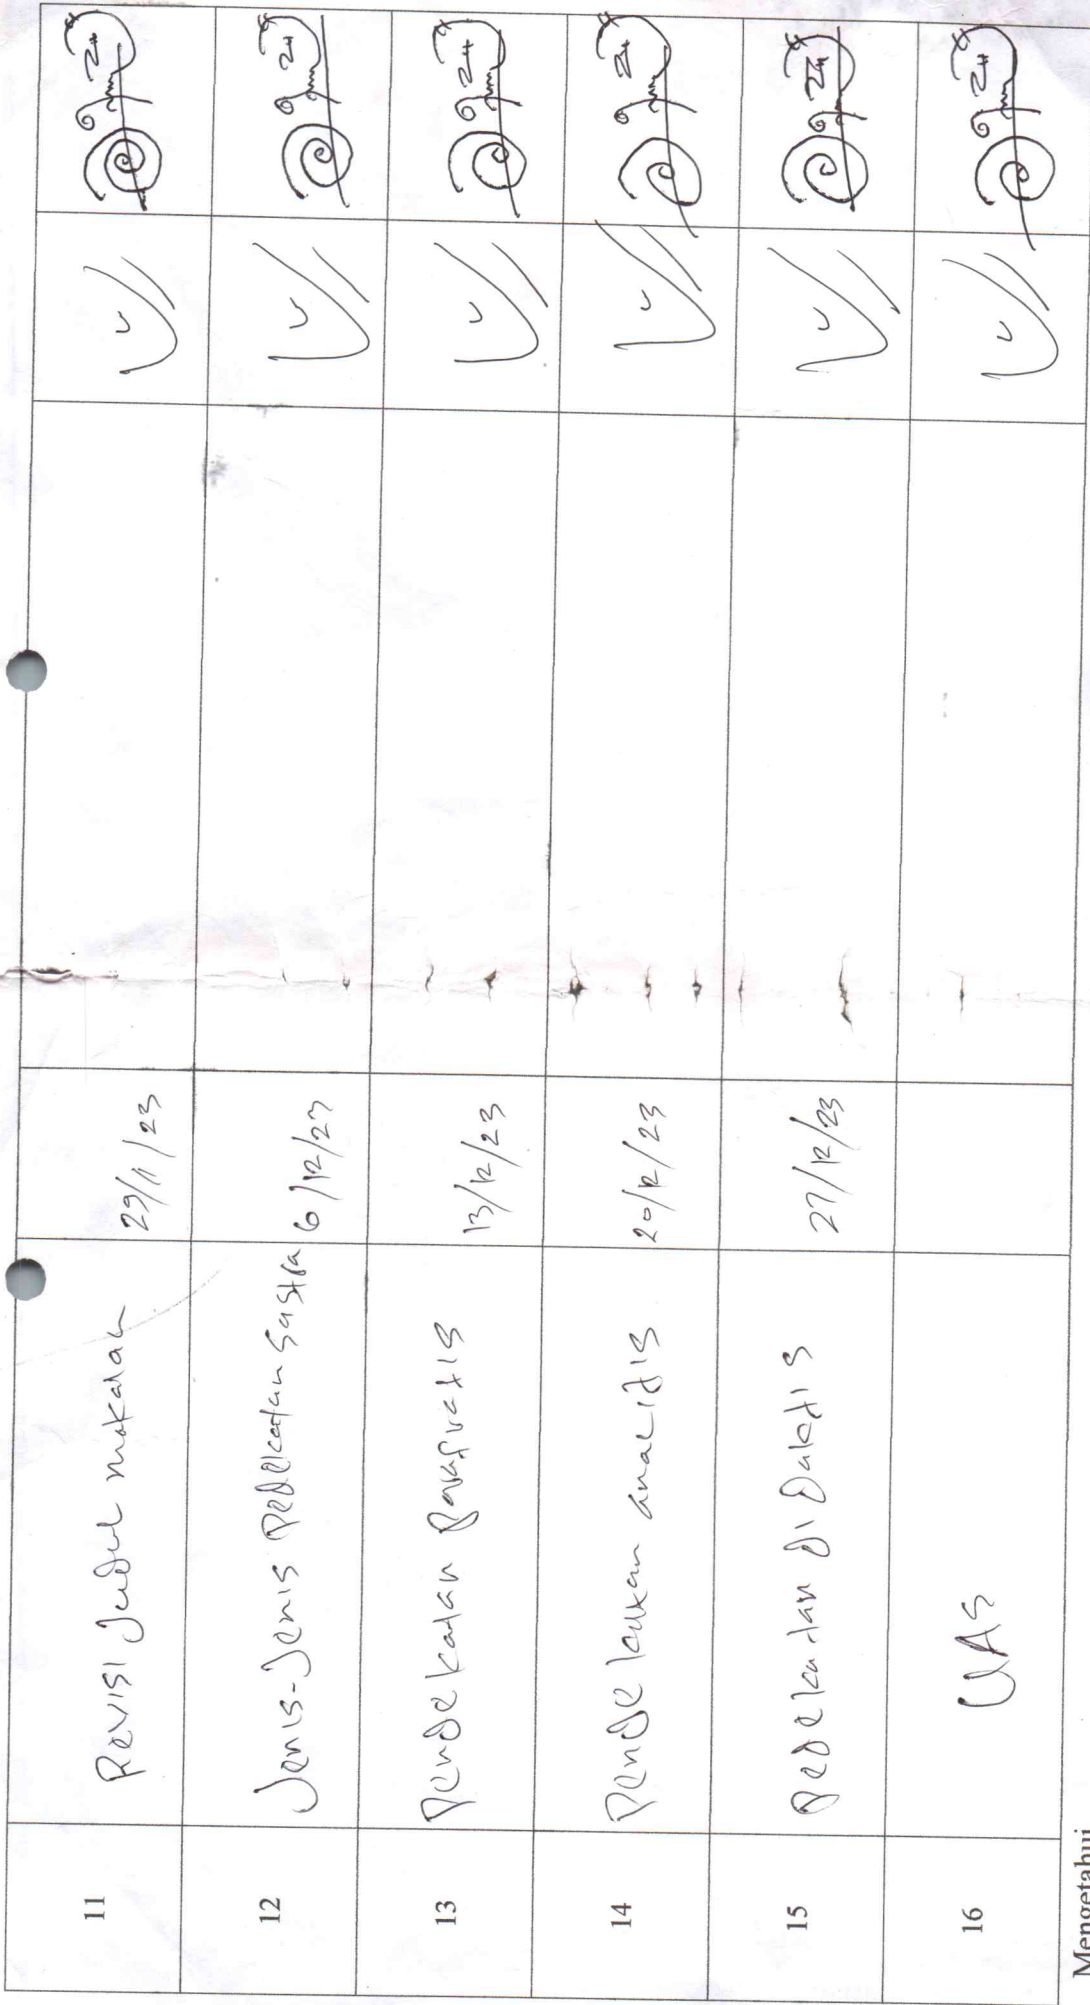 11 Revisi Judul makalah 29/11/23
12 Jenis-Jenis Pedekatan Sastra 6/12/23
13 Pendekatan Parafratis 13/12/23
14 Pendekatan analitis 20/12/23
15 Pedekatan Didaktis 27/12/23
16 UAS
Mengetahui